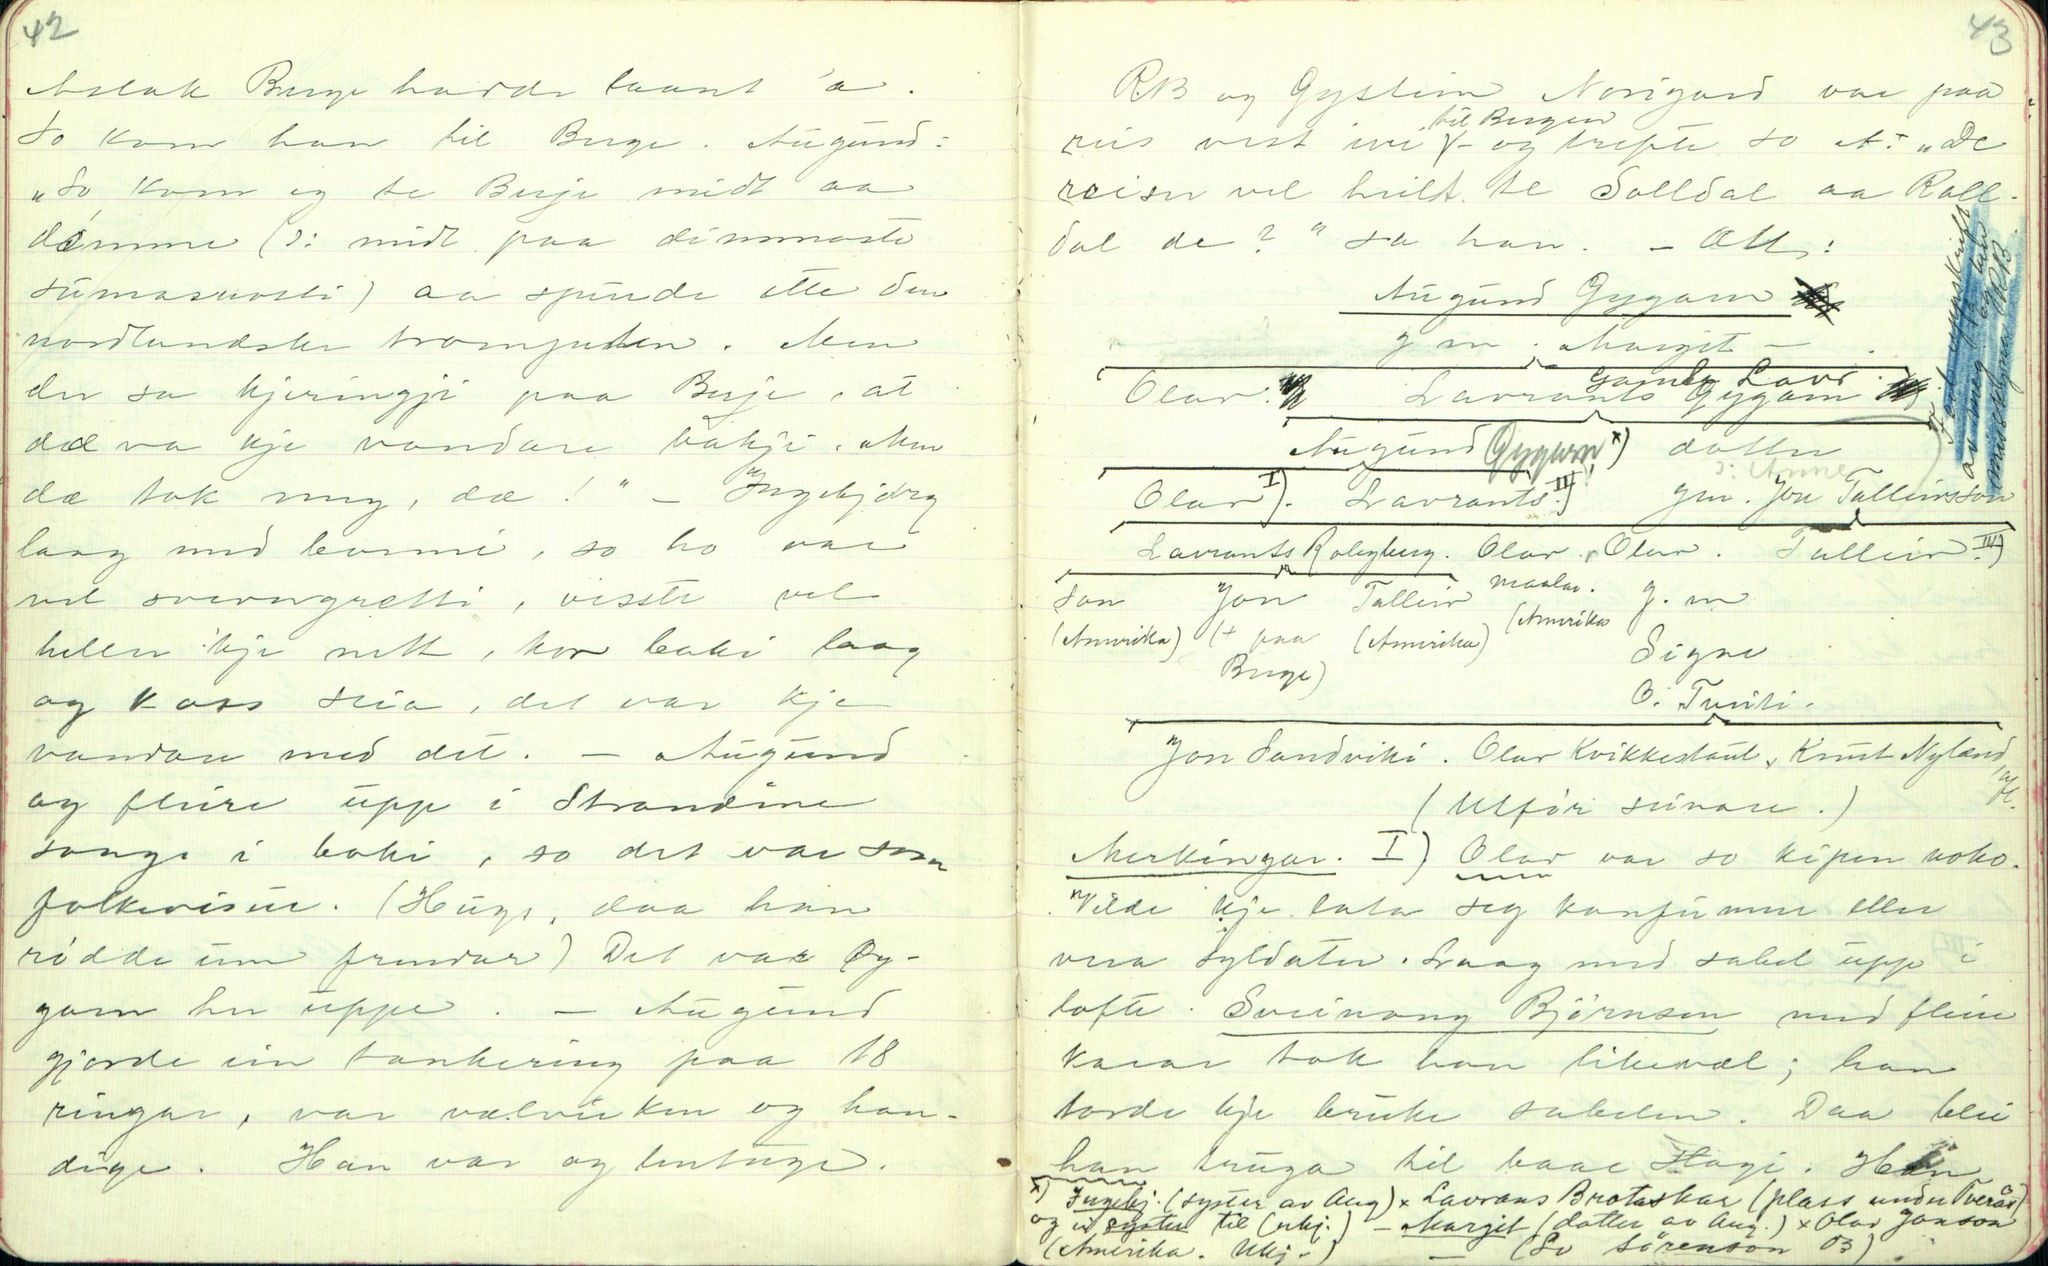 42
Aslak Berge hadde laant 'a.
So kom han til Berge. Augund:
"So kom eg te Berje midt aa
dimme (ɔ: midt paa dimmaste
sumarnotti) aa spurde ette den
nordlandske trompeten. Men
der sa kjeringji paa Berje, at
dæ va kje vandare bakji. Men
dæ tok meg, dæ!" – Ingebjørg
laag med bonni, so ho var
vel svevngretti, visste vel
heller 'kje nett, kor boki laag
og kass seia, det var kje
vandare med det. – Augund
og fleire uppe i Strandine
songe i boki, so det var som
folkevisur. (Hugs, daa han
rødde um frendar) Det var Gy-
garn her uppe. – Augund
gjorde ein tankering paa 18
ringar, var vælvirken og han-
dige. Han var og lentuge.
43
RB og Gystein Norigard var paa
reis vest ivi til Bergen – og trefte so A: "De
reiser vel heilt te Solldal aa Roll-
dal de?" sa han. – Ætt:
Augund Gygarn
g m. Margit –
Olav. Lavrants Gygarn
gamle Lavr.
Augund Gygarn x) dotter
ɔ: Anne
Olav I). Lavrants III) gm. Jon Talleivsson
Lavrants Roligberg. Olav. Olav. Talleiv IV)
Son Jon Talleiv maalar. g. m
(Amerika) (+ paa (Amerika) (Amerika Signe
Berge) O. Tveiti.
Jon Sandviki. Olav Kvikkestaul, Knut Nyland
(Utfør seinare.)
Merkingar. I) Olav var so kipen noko.
Vilde kje lata seg konfirmere eller
vera syldater. Laag med sabel uppe i
lofte. Sveinung Bjørnsen med fleire
karar tok han likevæl; han
torde kje bruke sabelen. Daa blei
han truga til baae Slagi. Han
x) Ingebj. (syster av Aug) x Lavrans Brotaskar (plass under Tveraa)
og ei syster til (ukj.) – Margit (dotter av Aug.) x Olav Jonson
(Amerika. Ukj.) – (So Sørenson 03)